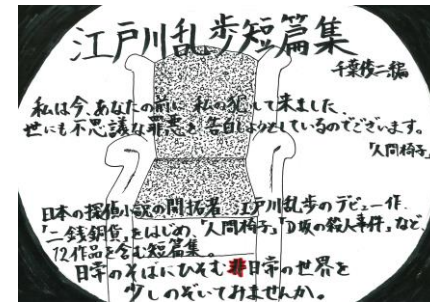 江戸川乱歩短篇集
千葉俊二編
私は今、あなたの前に、私の犯して来ました、
世にも不思議な罪悪を、告白しようとしているのでございます。
「人間椅子」
日本の探偵小説の開拓者 江戸川乱歩のデビュー作
「二銭銅貨」をはじめ、「人間椅子」「D坂の殺人事件」など、
12作品を含む短篇集。
日常のそばにひそむ非日常の世界を
少しのぞいてみませんか。